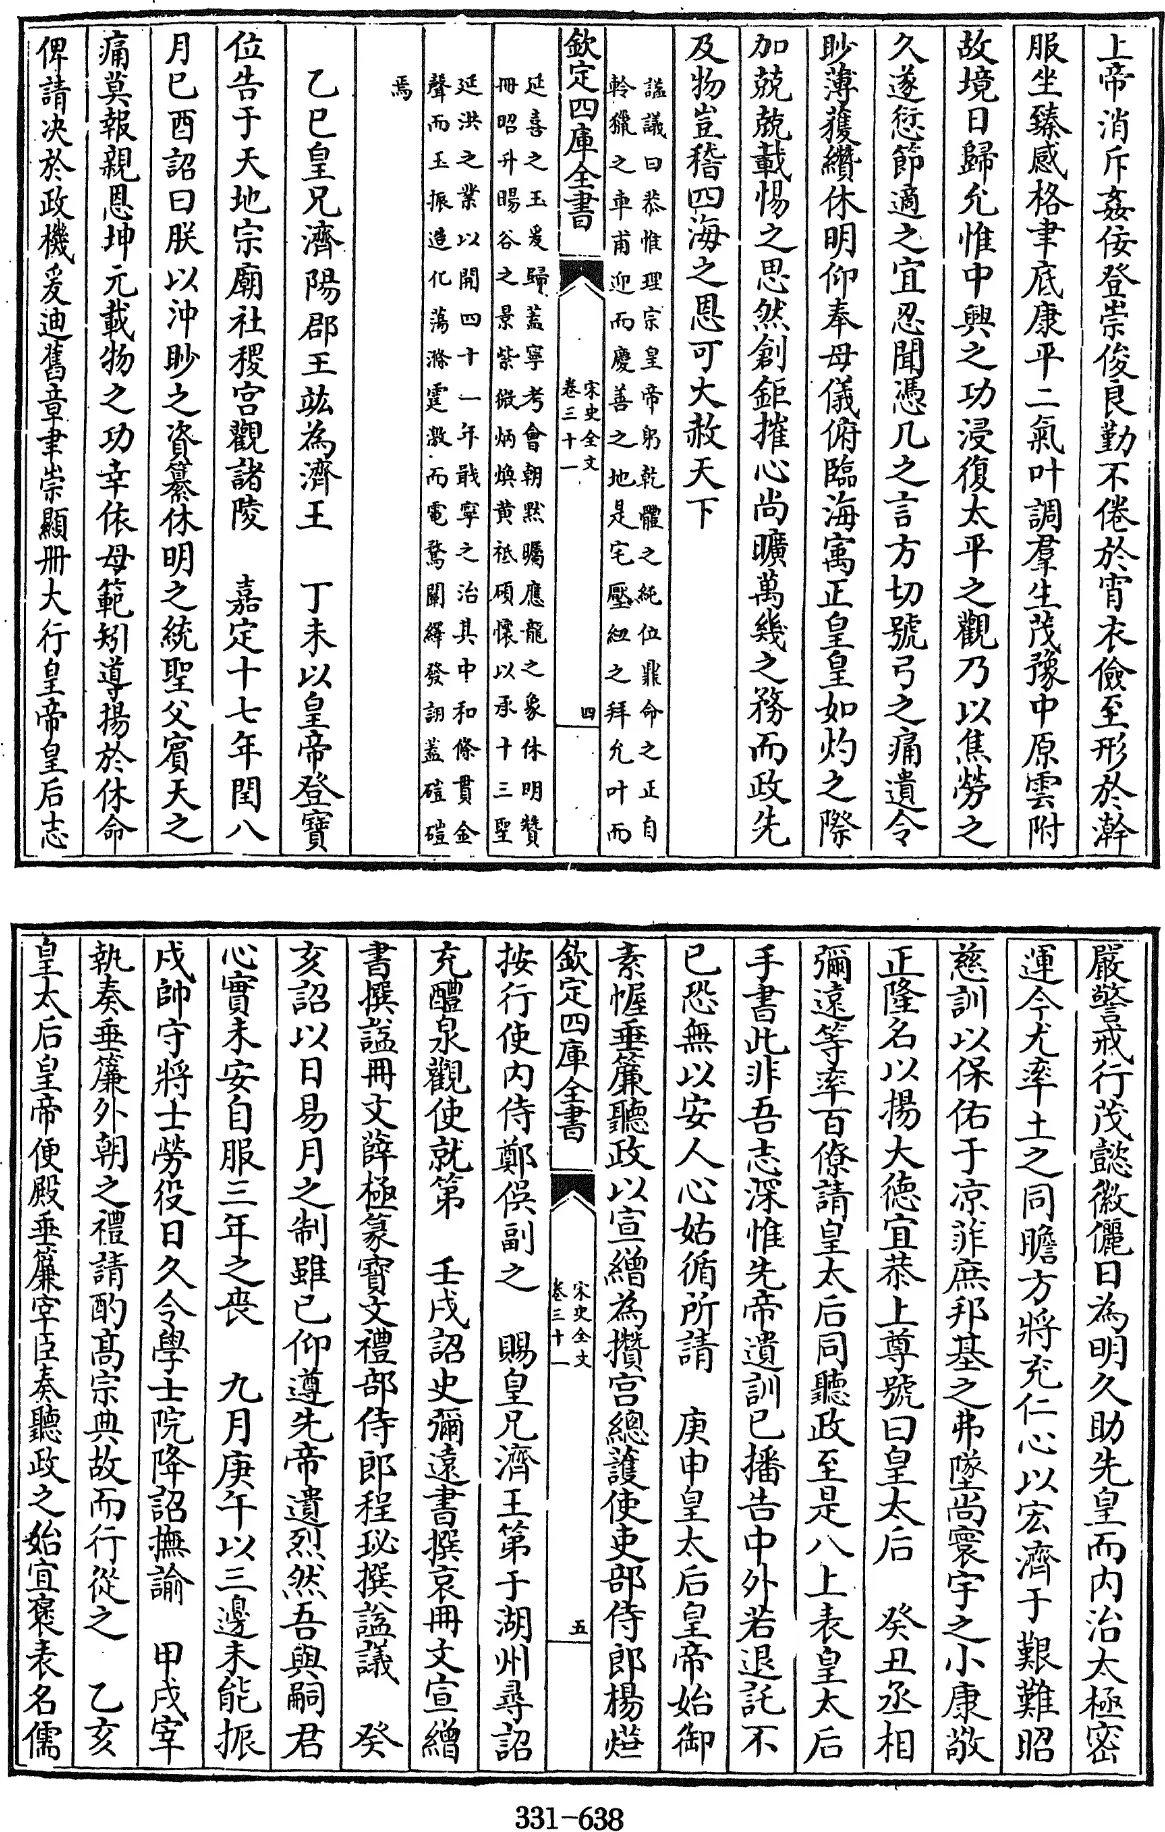 上帝消斥姦佞登崇俊良勤不倦於宵衣儉至形於澣
服坐臻感格聿底康平二氣叶調羣生茂豫中原雲附
故境日歸允惟中興之功浸復太平之觀乃以焦勞之
久遂愆節適之宜忍聞憑几之言方切號弓之痛遺令
眇薄獲纘休明仰奉母儀俯臨海㝢正皇皇如灼之際
加兢兢載惕之思然創鉅摧心尚曠萬幾之務而政先
及物豈稽四海之恩可大赦天下
諡議曰恭惟理宗皇帝躬乾體之純位鼎命之正自
軨獵之車甫迎而慶善之地是宅壓紐之拜允叶而
欽定四庫全書
宋史全文
卷三十一
四
延喜之玉爰歸蓋寧考會朝黙矚應龍之象休明贊
冊昭升暘谷之景紫微炳煥黄祗碩懷以承十三聖
延洪之業以開四十一年戢寧之治其中和條貫金
聲而玉振造化蕩滌霆激而電驁闡繹發詡蓋磑磑
焉
乙巳皇兄濟陽郡王竑為濟王　丁未以皇帝登寶
位告于天地宗廟社稷宫觀諸陵　嘉定十七年閏八
月巳酉詔曰朕以沖眇之資纂休明之統聖父賓天之
痛莫報親恩坤元載物之功幸依母範矧導揚於休命
俾請决於政機爰迪舊章聿崇顯册大行皇帝皇后志
嚴警戒行茂懿徽儷日為明久助先皇而内治太極密
運今尤率土之同瞻方將充仁心以宏濟于艱難昭
慈訓以保佑于凉菲庶邦基之弗墜尚寰宇之小康敬
正隆名以揚大德宜恭上尊號曰皇太后　癸丑丞相
彌遠等率百僚請皇太后同聽政至是八上表皇太后
手書此非吾志深惟先帝遺訓已播告中外若退託不
已恐無以安人心姑循所請　庚申皇太后皇帝始御
素幄垂簾聽政以宣繒為攅宫總護使吏部侍郎楊㷍
欽定四庫全書
宋史全文
卷三十一
五
按行使内侍鄭俣副之　賜皇兄濟王第于湖州尋詔
充醴泉觀使就第　壬戌詔史彌遠書撰哀冊文宣繒
書撰諡冊文薛極篆寶文禮部侍郎程珌撰諡議　癸
亥詔以日易月之制雖已仰遵先帝遺烈然吾與嗣君
心實未安自服三年之喪　九月庚午以三邊未能振
戍帥守將士勞役日久令學士院降詔撫諭　甲戌宰
執奏垂簾外朝之禮請酌髙宗典故而行從之　乙亥
皇太后皇帝便殿垂簾宰臣奏聽政之始宜褒表名儒
331-638